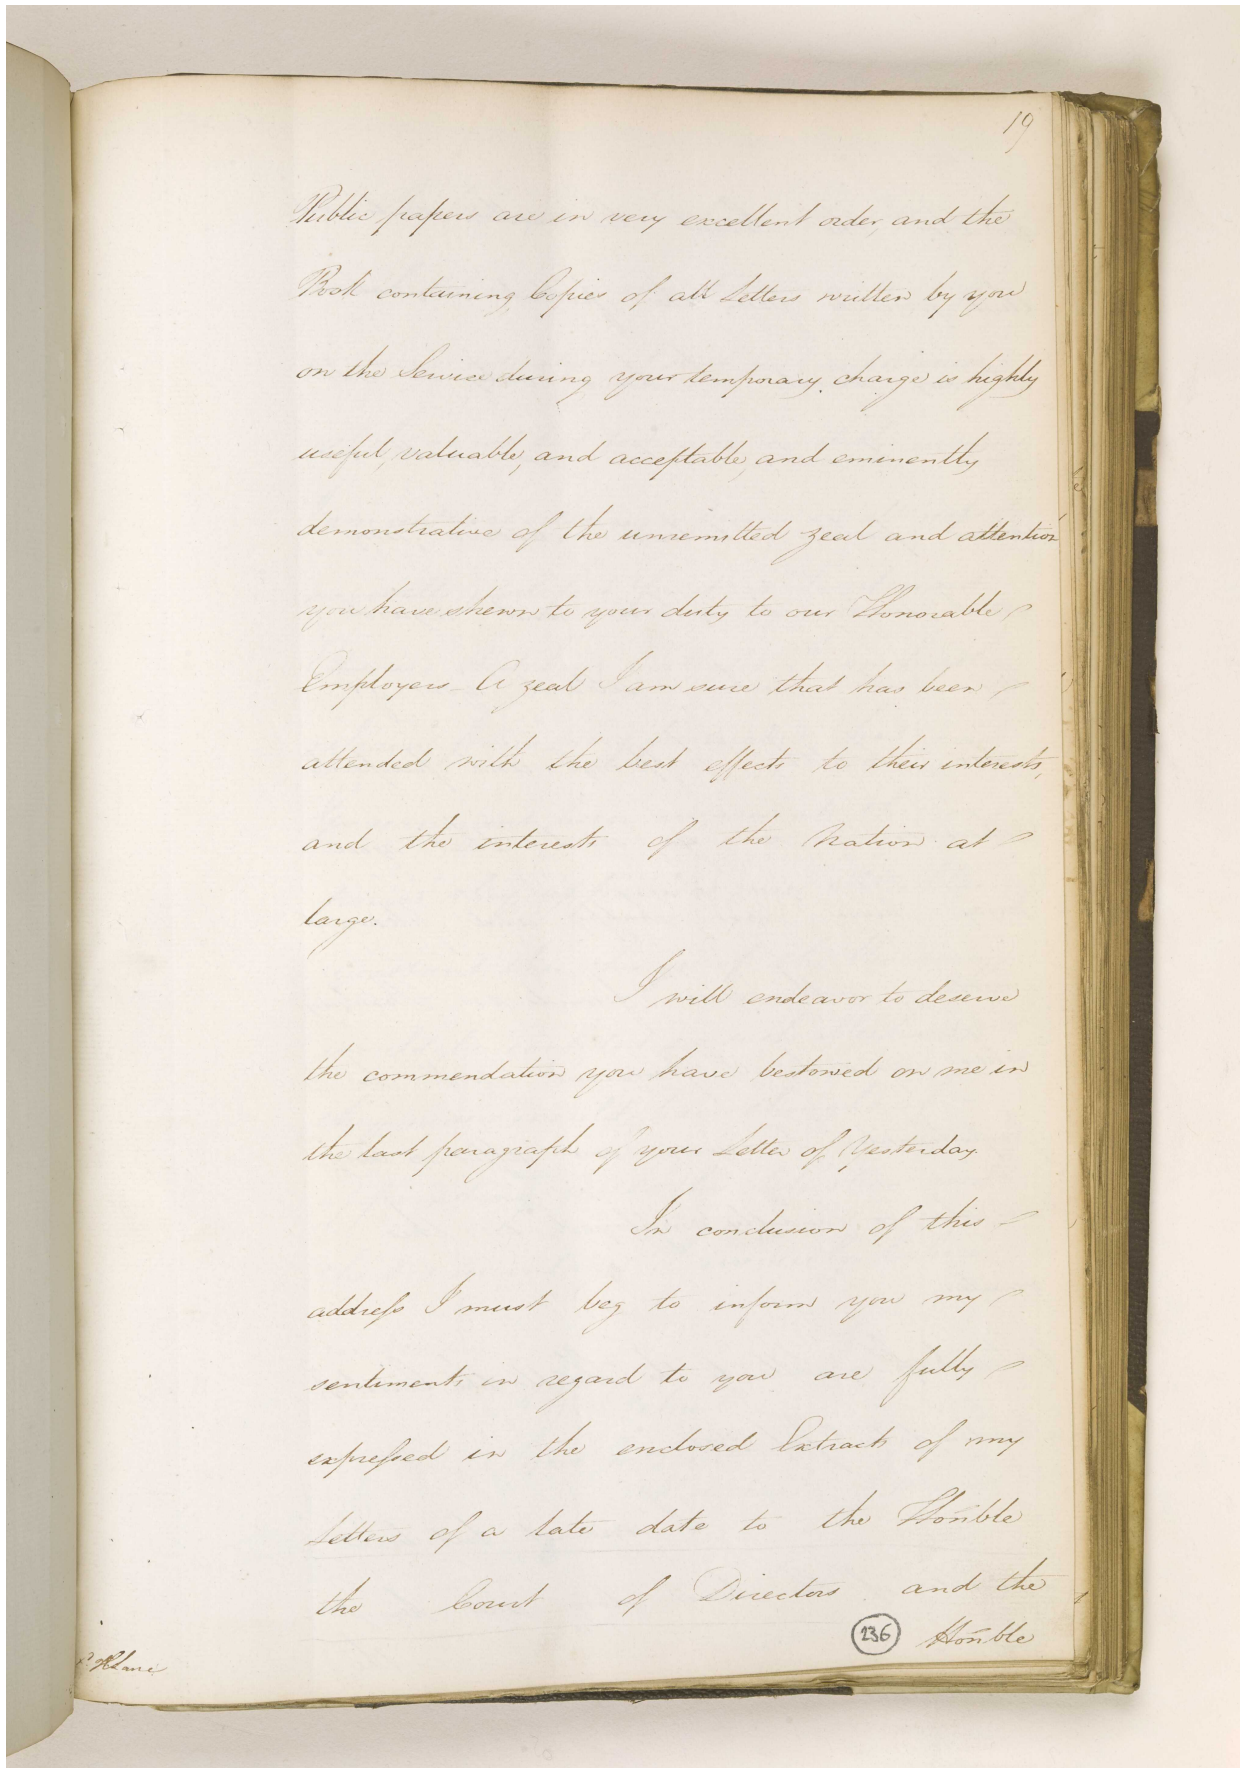 19
Public papers are in very excellent order, and the
Book containing Copies of all Letters written by you
on the Service during your temporary charge is highly
useful, valuable, and acceptable, and eminently
demonstrative of the unremitted zeal and attention
you have shewn to your duty to our Honorable
Employers - A zeal I am sure that has been
attended with the best effects to their interests,
and the interests of the Nation at
large.
I will endeavor to deserve
the commendation you have bestowed on me in
the last paragraph of your Letter of Yesterday.
In conclusion of this
address I must beg to inform you my
sentiments in regard to you are fully
expressed in the enclosed Extracts of my
Letters of a late date to the Honble
the Court of Directors and the
236 Honble